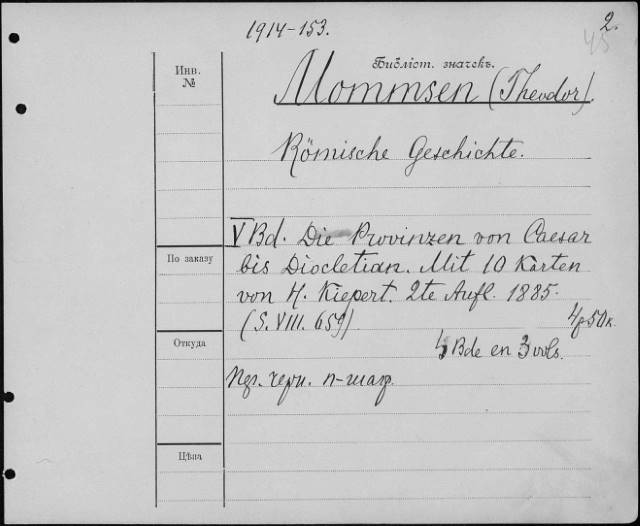 1914-153.
2.
45
Инв.
№
Библіот. значекъ.
Mommsen (Theodor).
Römische Geschichte.
V Bd. Die Provinzen von Caesar
По заказу
bis Diocletian. Mit 10 Karten
von H. Kiepert. 2te Aufl. 1885.
(S. VIII. 659)
4р50к.
Откуда
Bde en 3 vols.
п-шагр.
Цѣна